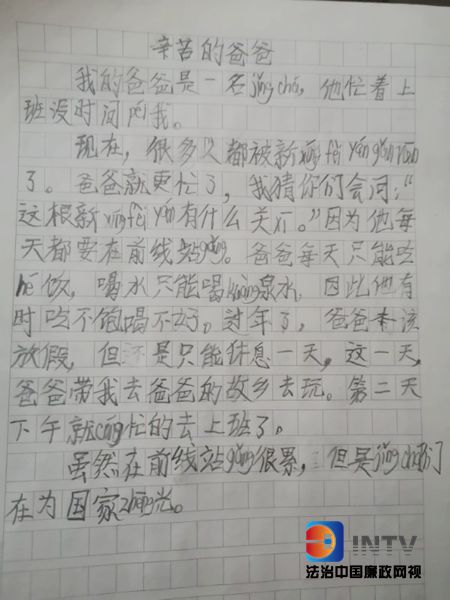 辛苦的爸爸
我的爸爸是一名jǐng chá, 他忙着上
班没时间陪我。
现在, 很多人都被新xíng fèi yán gǎn rǎn
了。爸爸就更忙了, 我猜你们会问:“
这根新xíng fèi yán有什么关了。”因为他每
天都要在前线站gǎng。爸爸每天只能吃
hé饭, 喝水只能喝kuàng泉水, 因此他有
时吃不饱喝不好。过年了, 爸爸本该
放假, 但还是只能休息一天, 这一天,
爸爸带我去爸爸的故乡去玩。第二天
下午就cōng忙的去上班了。
虽然在前线站gǎng很累, 但是jǐng chá们
在为国家zhēng光。
INTV
法治中国廉政网视